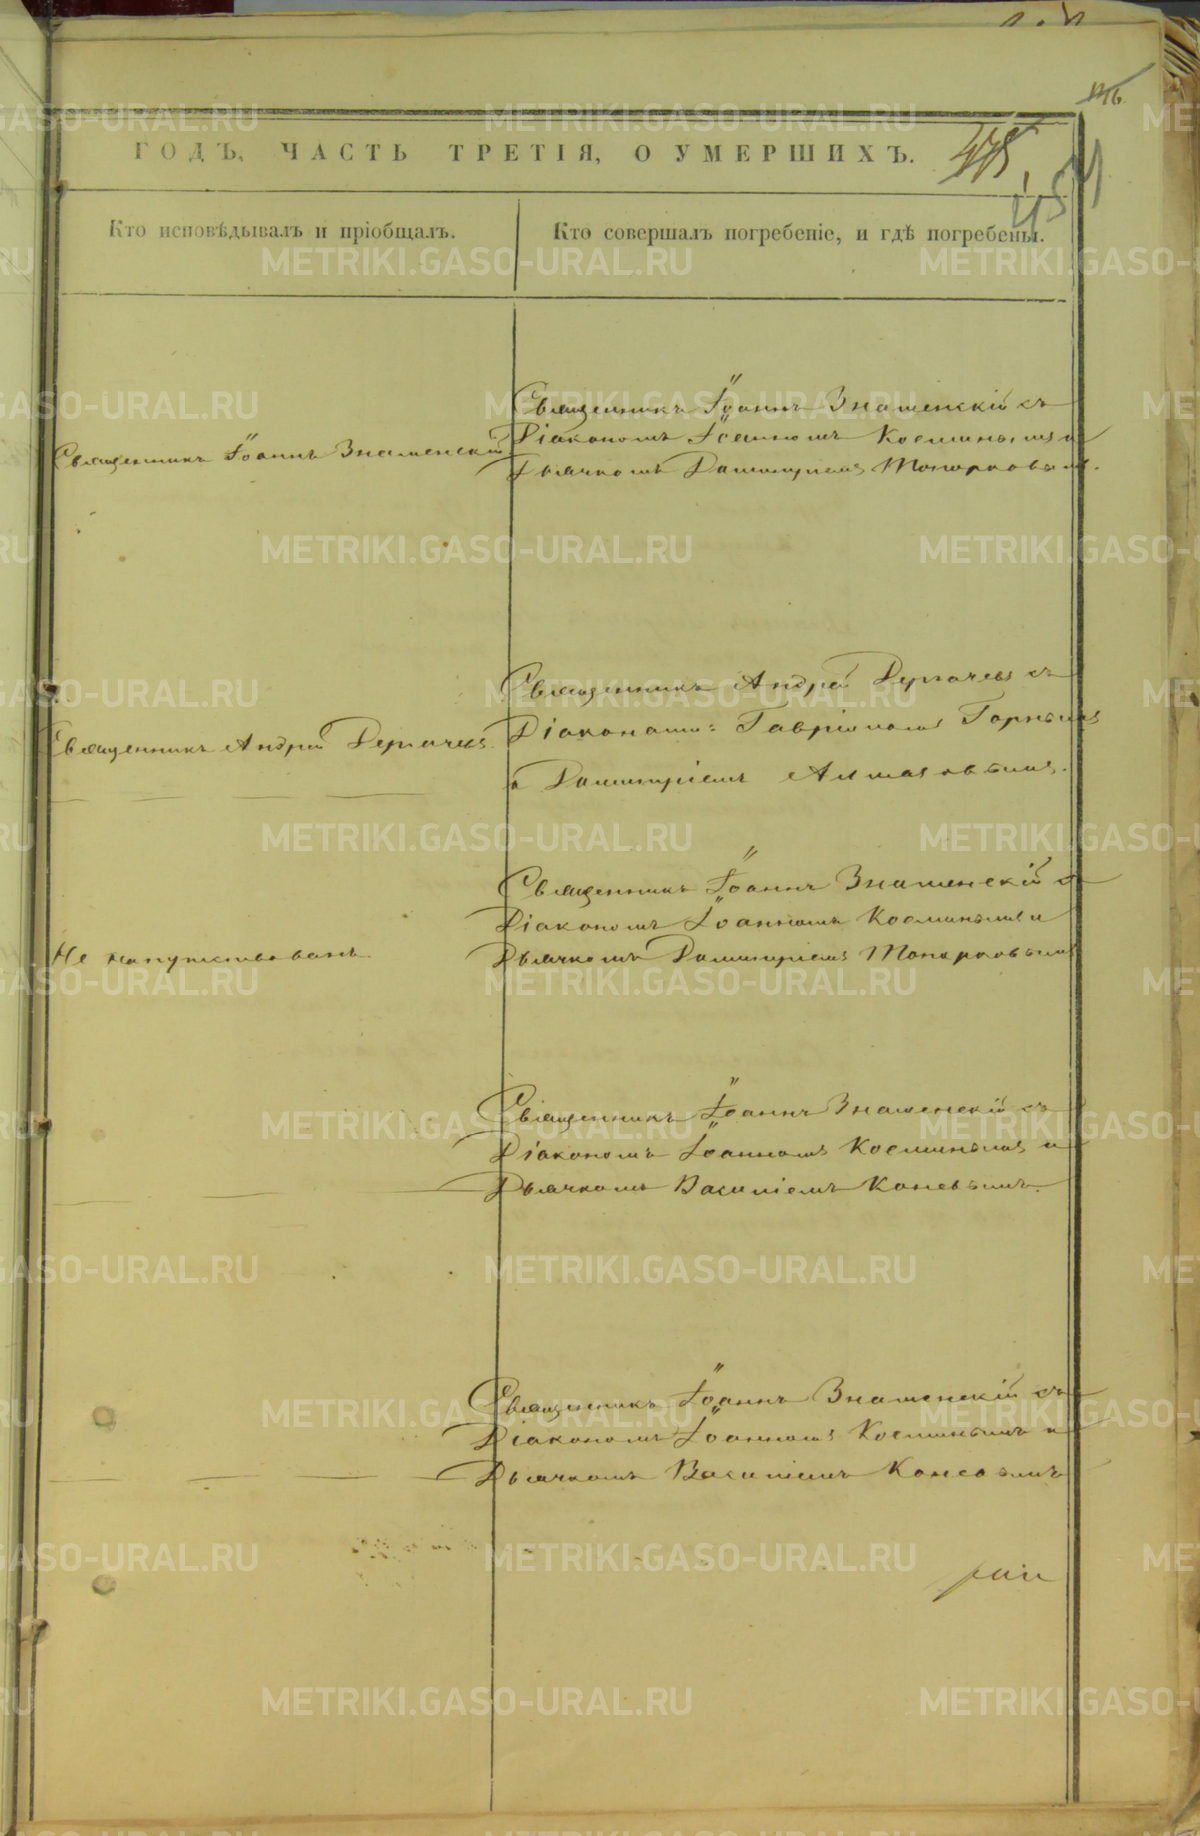 146
ГОДЪ, ЧАСТЬ ТРЕТІЯ, О УМЕРШИХЪ.
451
Кто исповѣдывалъ и пріобщалъ.
Кто совершалъ погребеніе, и гдѣ погребены.
Священникъ Іоаннъ Знаменскій
Священникъ Іоаннъ Знаменскій съ
Діакономъ Іоанномъ Косминымъ и
Дьячкомъ Димитріемъ Топорковымъ.
Священникъ Андрей Дергачевъ.
Священникъ Андрей Дергачевъ съ
Діаконами: Гавріиломъ Горнымъ
и Димитріемъ Алмазовымъ.
Не напутствованъ.
Священникъ Іоаннъ Знаменскій съ
Діакономъ Іоанномъ Косминымъ и
Дьячкомъ Димитріемъ Топорковымъ
Священникъ Іоаннъ Знаменскій съ
Діакономъ Іоанномъ Косминымъ и
Дьячкомъ Василіемъ Коневымъ.
Священникъ Іоаннъ Знаменскій съ
Діакономъ Іоанномъ Косминымъ и
Дьячкомъ Василіемъ Коневымъ
METRIKI.GASO-URAL.RU